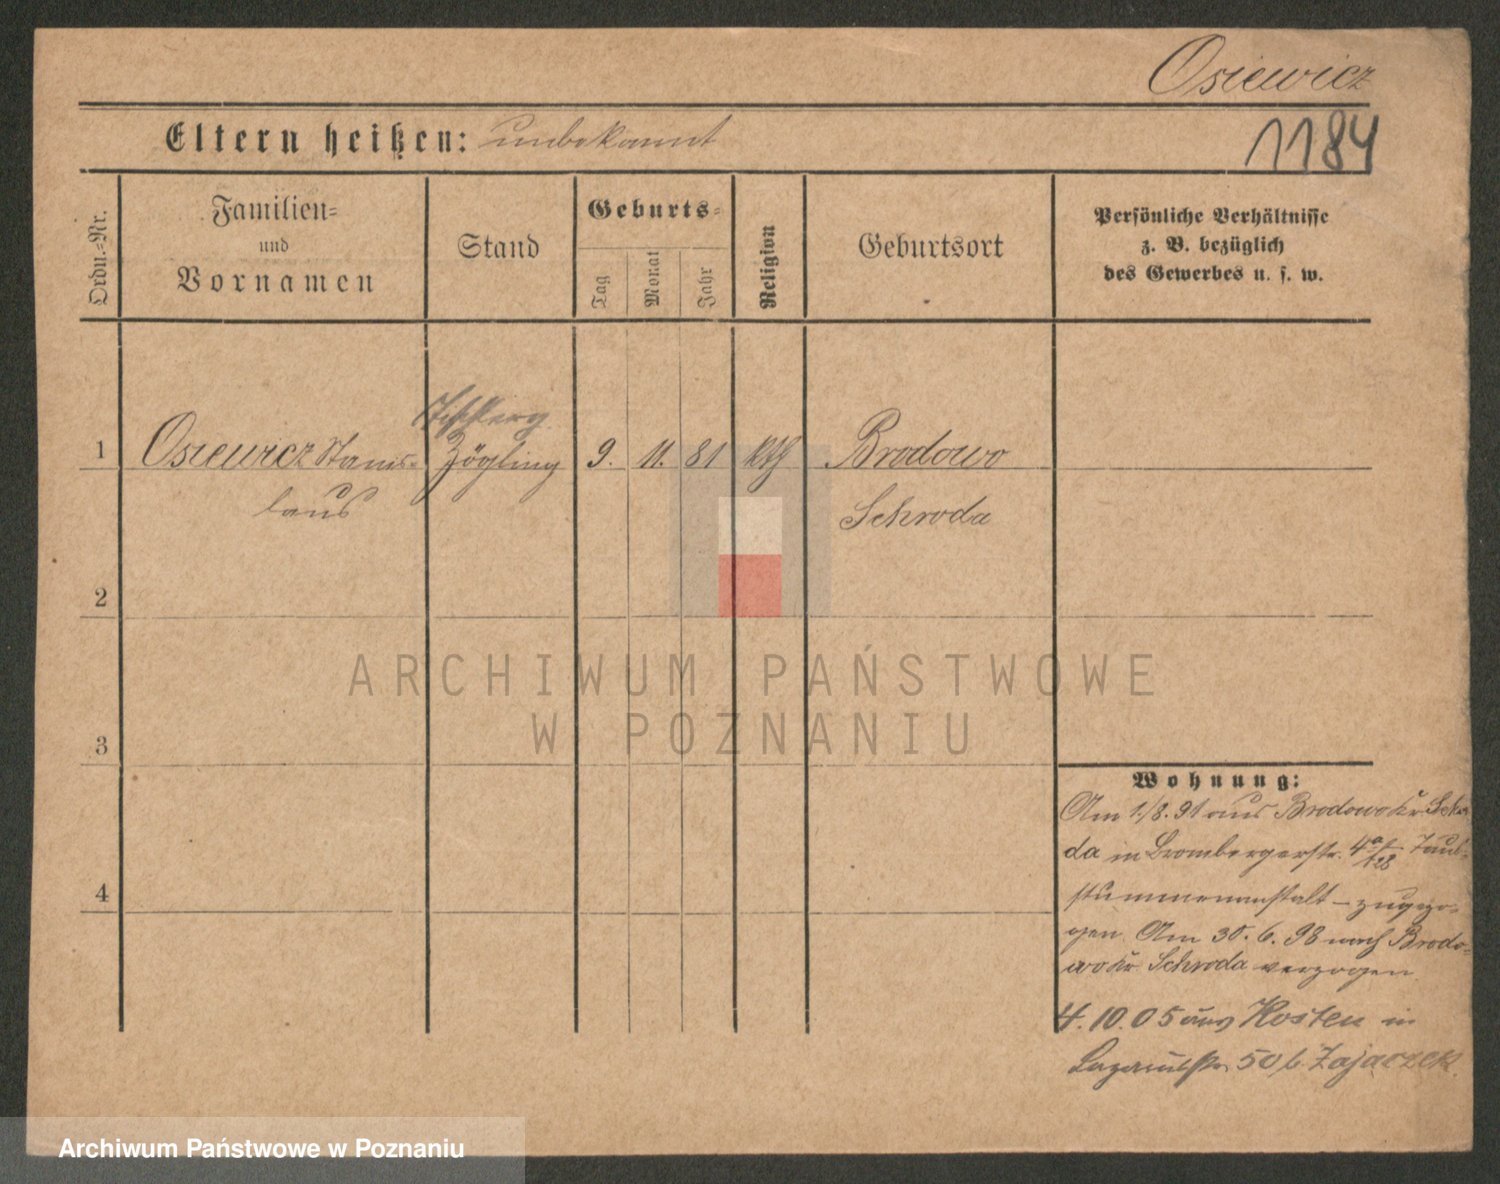 Osiewicz
Eltern heißen: unbekannt
1184
Ordn.=Nr.
Familien=
und
Vornamen
Stand
Geburts=
Tag
Monat
Jahr
Religion
Geburtsort
Persönliche Verhältnisse
z. B. bezüglich
des Gewerbes u. s. w.
1 Osiewicz Stanis= Zögling 9. 11. 81 kth Brodowo
laus Schroda
2
3
4
ARCHIWUM PAŃSTWOWE
W POZNANIU
Wohnung:
Am 1./8. 91 aus Brodowo Kr. Schro
da in Brombergerstr. 4a Taub=
stummenanstalt – zugezo=
gen. Am 30. 6. 98 nach Brodo=
wo Kr. Schroda verzogen.
4. 10. 05 aus Kosten in
50 b. Zajaczek.
Archiwum Państwowe w Poznaniu